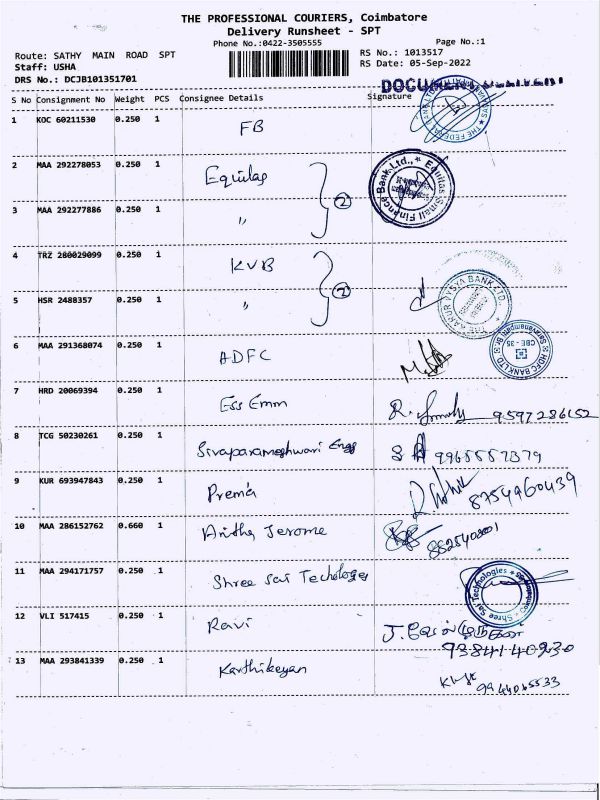 THE PROFESSIONAL COURIERS, Coimbatore
Delivery Runsheet - SPT
Phone No.:0422-3505555
Page No.:1
Route: SATHY MAIN ROAD SPT
RS No.: 1013517
Staff: USHA
RS Date: 05-Sep-2022
DRS No.: DCJB101351701
S No Consignment No Weight PCS Consignee Details Signature
1 KOC 60211530 0.250 1 FB
2 MAA 292278053 0.250 1 Equitas
②
3 MAA 292277886 0.250 1 "
Equitas Small Finance Bank Ltd.,
4 TRZ 280029099 0.250 1 KVB
②
5 HSR 2488357 0.250 1 "
THE KARUR VYSYA BANK LTD.,
6 MAA 291368074 0.250 1 ADFC
HDFC BANK LTD
CBE - 35
7 HRD 20069394 0.250 1 Ess Emm 9597286152
8 TCG 50230261 0.250 1 Sivaparameshwari Engg
9 KUR 693947843 0.250 1 Prema 8754960439
10 MAA 286152762 0.660 1 Anitha Jerome
11 MAA 294171757 0.250 1 Shree Sai Techologies
Shree Sai Technologies
12 VLI 517415 0.250 1 Ravi J. வேல்முருகன்
9384140930
13 MAA 293841339 0.250 1 Karthikeyan 9944065533